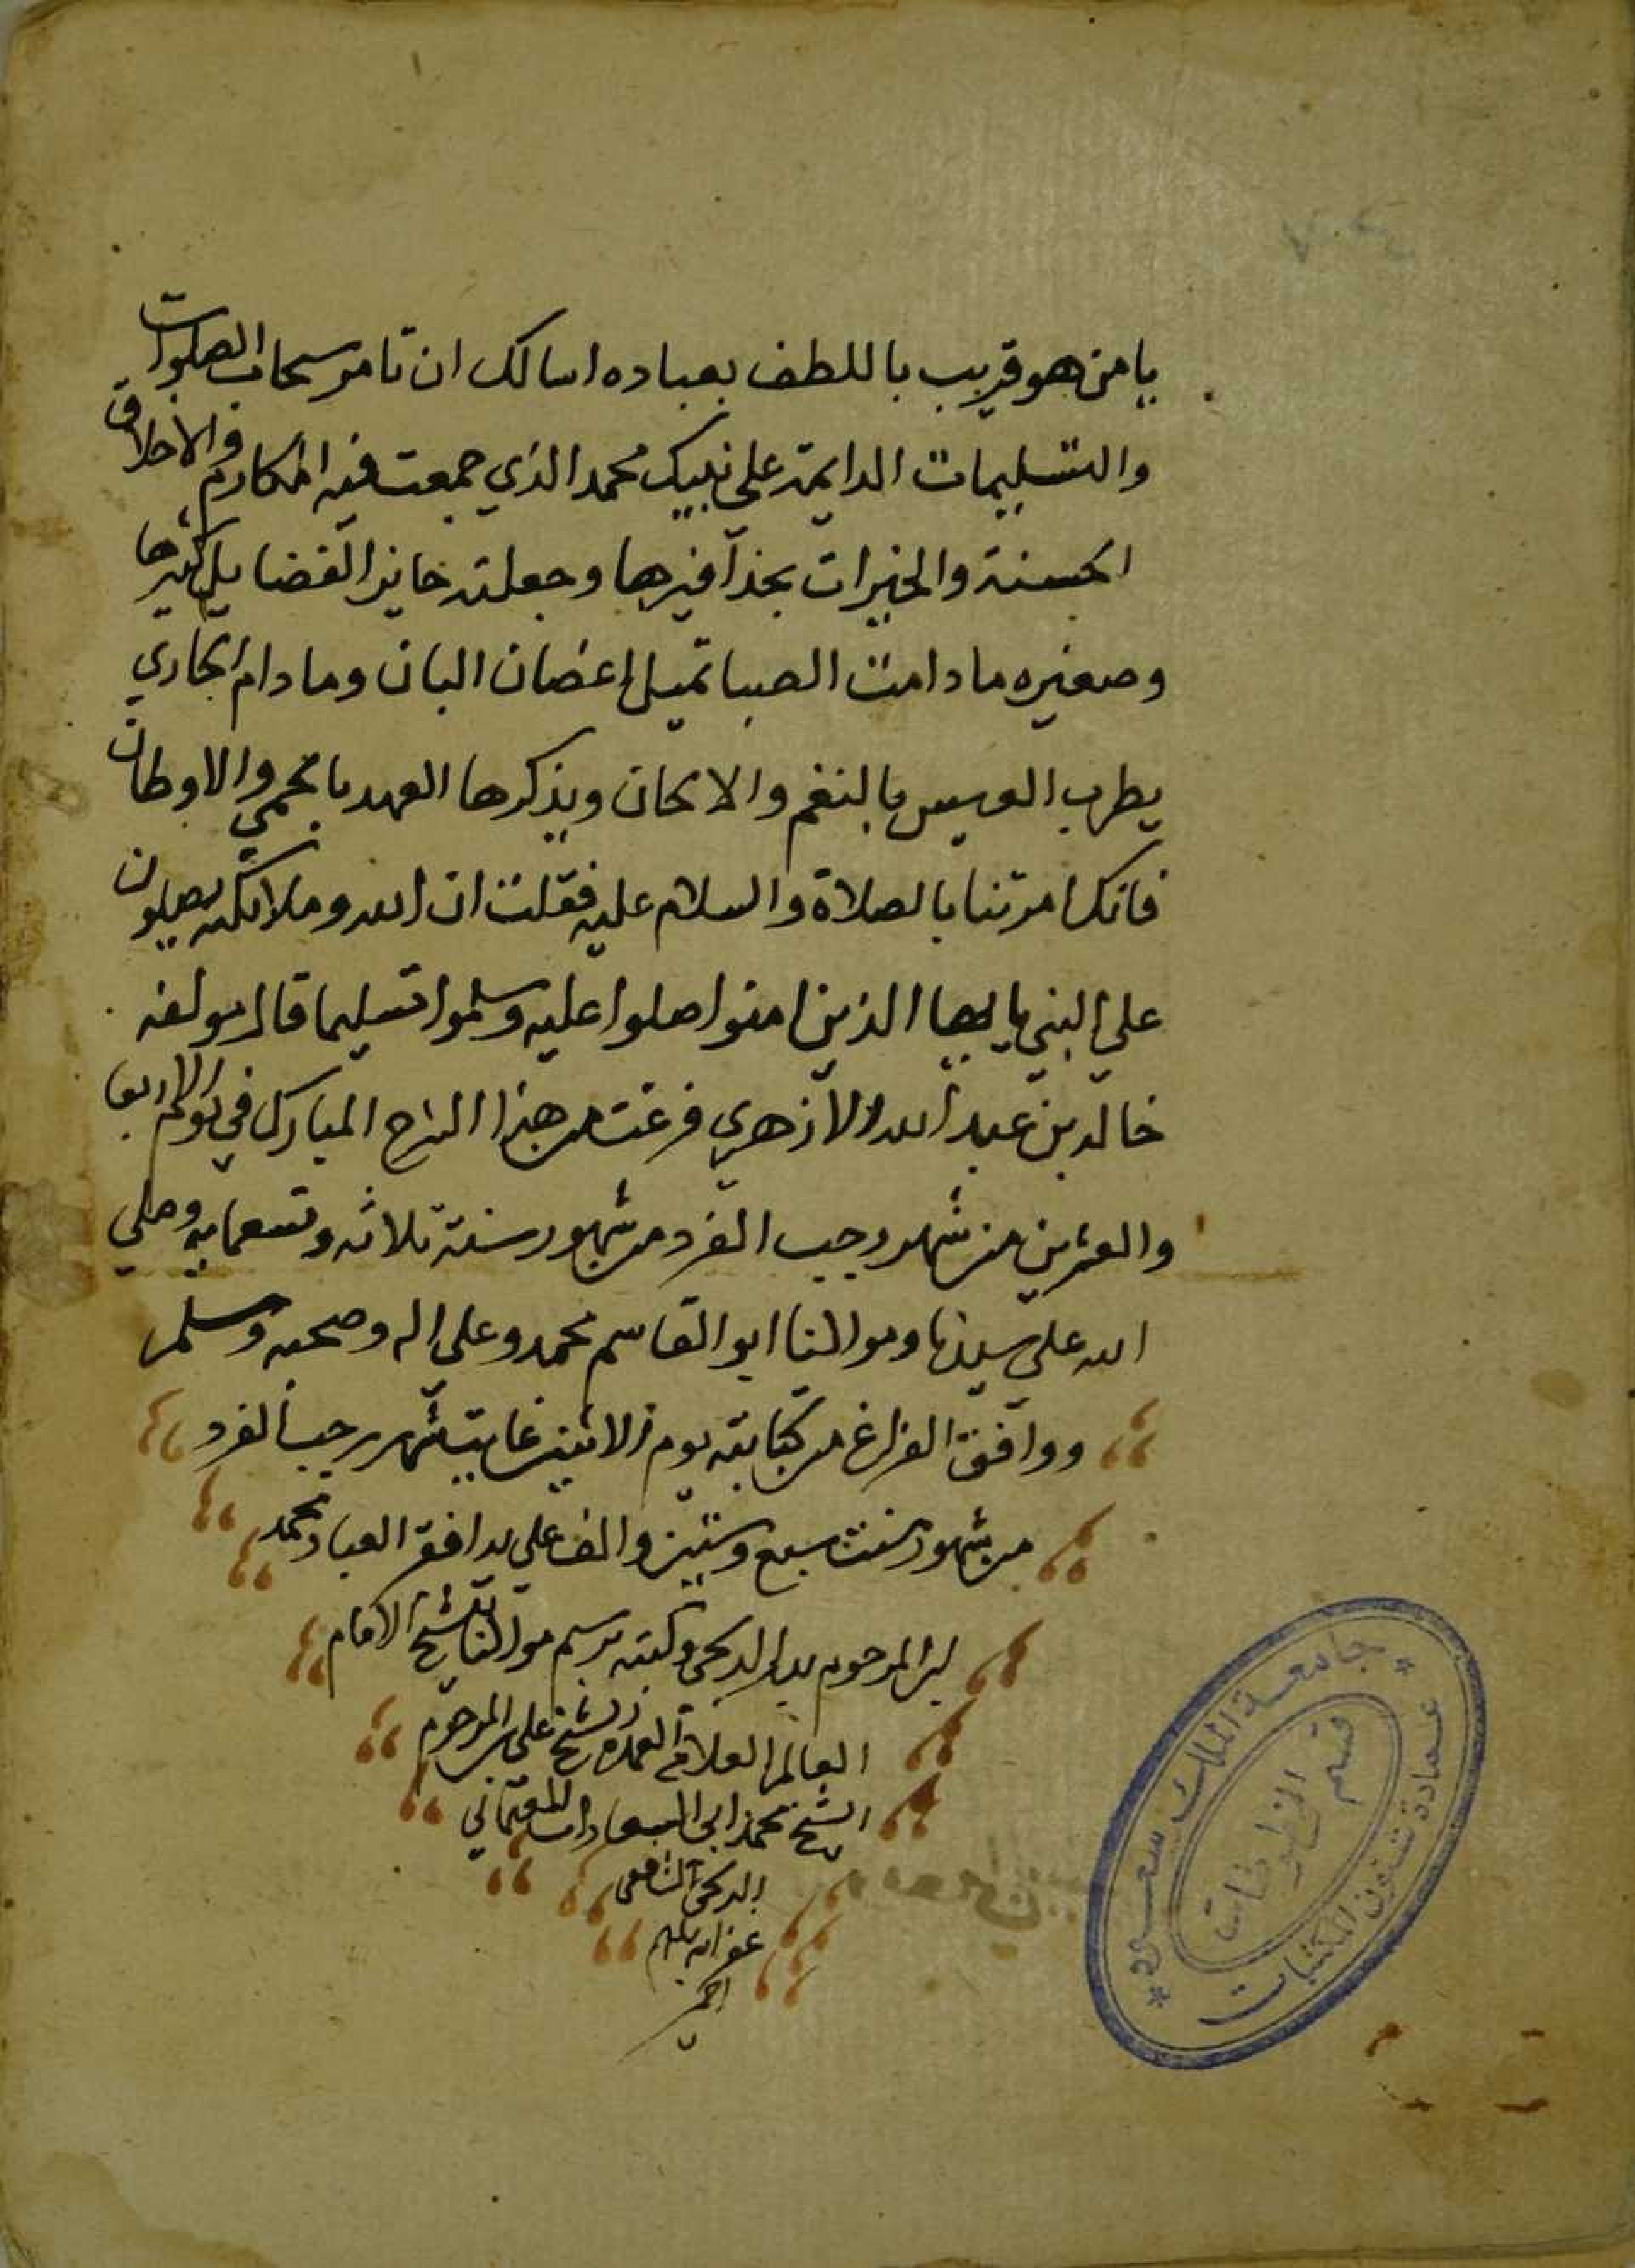 يا من هو قريب باللطف بعباده اسالك ان تامر سحاب الصلوات
والتسليمات الدايمة على نبيك محمد الذي جمعت فيه المكارم والاخلاق
الحسنة والخيرات بحذافيرها وجعلته حايز الفضايل كثيرها
وصغيره ما دامت الصبا تميل اغصان البان وما دام الحادي
يطرب العيس بالنغم والالحان ويذكرها العهد بالحمى والاوطان
فانك امرتنا بالصلاة والسلام عليه فقلت ان الله وملائكته يصلون
على النبي يا ايها الذين امنوا صلوا عليه وسلموا تسليما قال مولفه
خالد بن عبد الله الازهري فرغت من هذا الشرح المبارك في يوم الاربعا
والعشرين من شهر رجب الفرد من شهور سنة ثلاثه وتسعمايه وصلى
الله على سيدنا ومولانا ابو القاسم محمد وعلى اله وصحبه وسلم
ووافق الفراغ من كتابته يوم الاثنين غاية شهر رجب الفرد
من شهور سنت سبع وستين والف على يد افقر العباد محمد
المرحوم الدكجي وكتبه برسم مولانا الشيخ الامام
العالم العلامة العمدة الشيخ علي المرحوم
الشيخ محمد ابي السعادات
الشافعي
غفر الله لهم
جامعة الملك سعود
عمادة شئون المكتبات
قسم المخطوطات